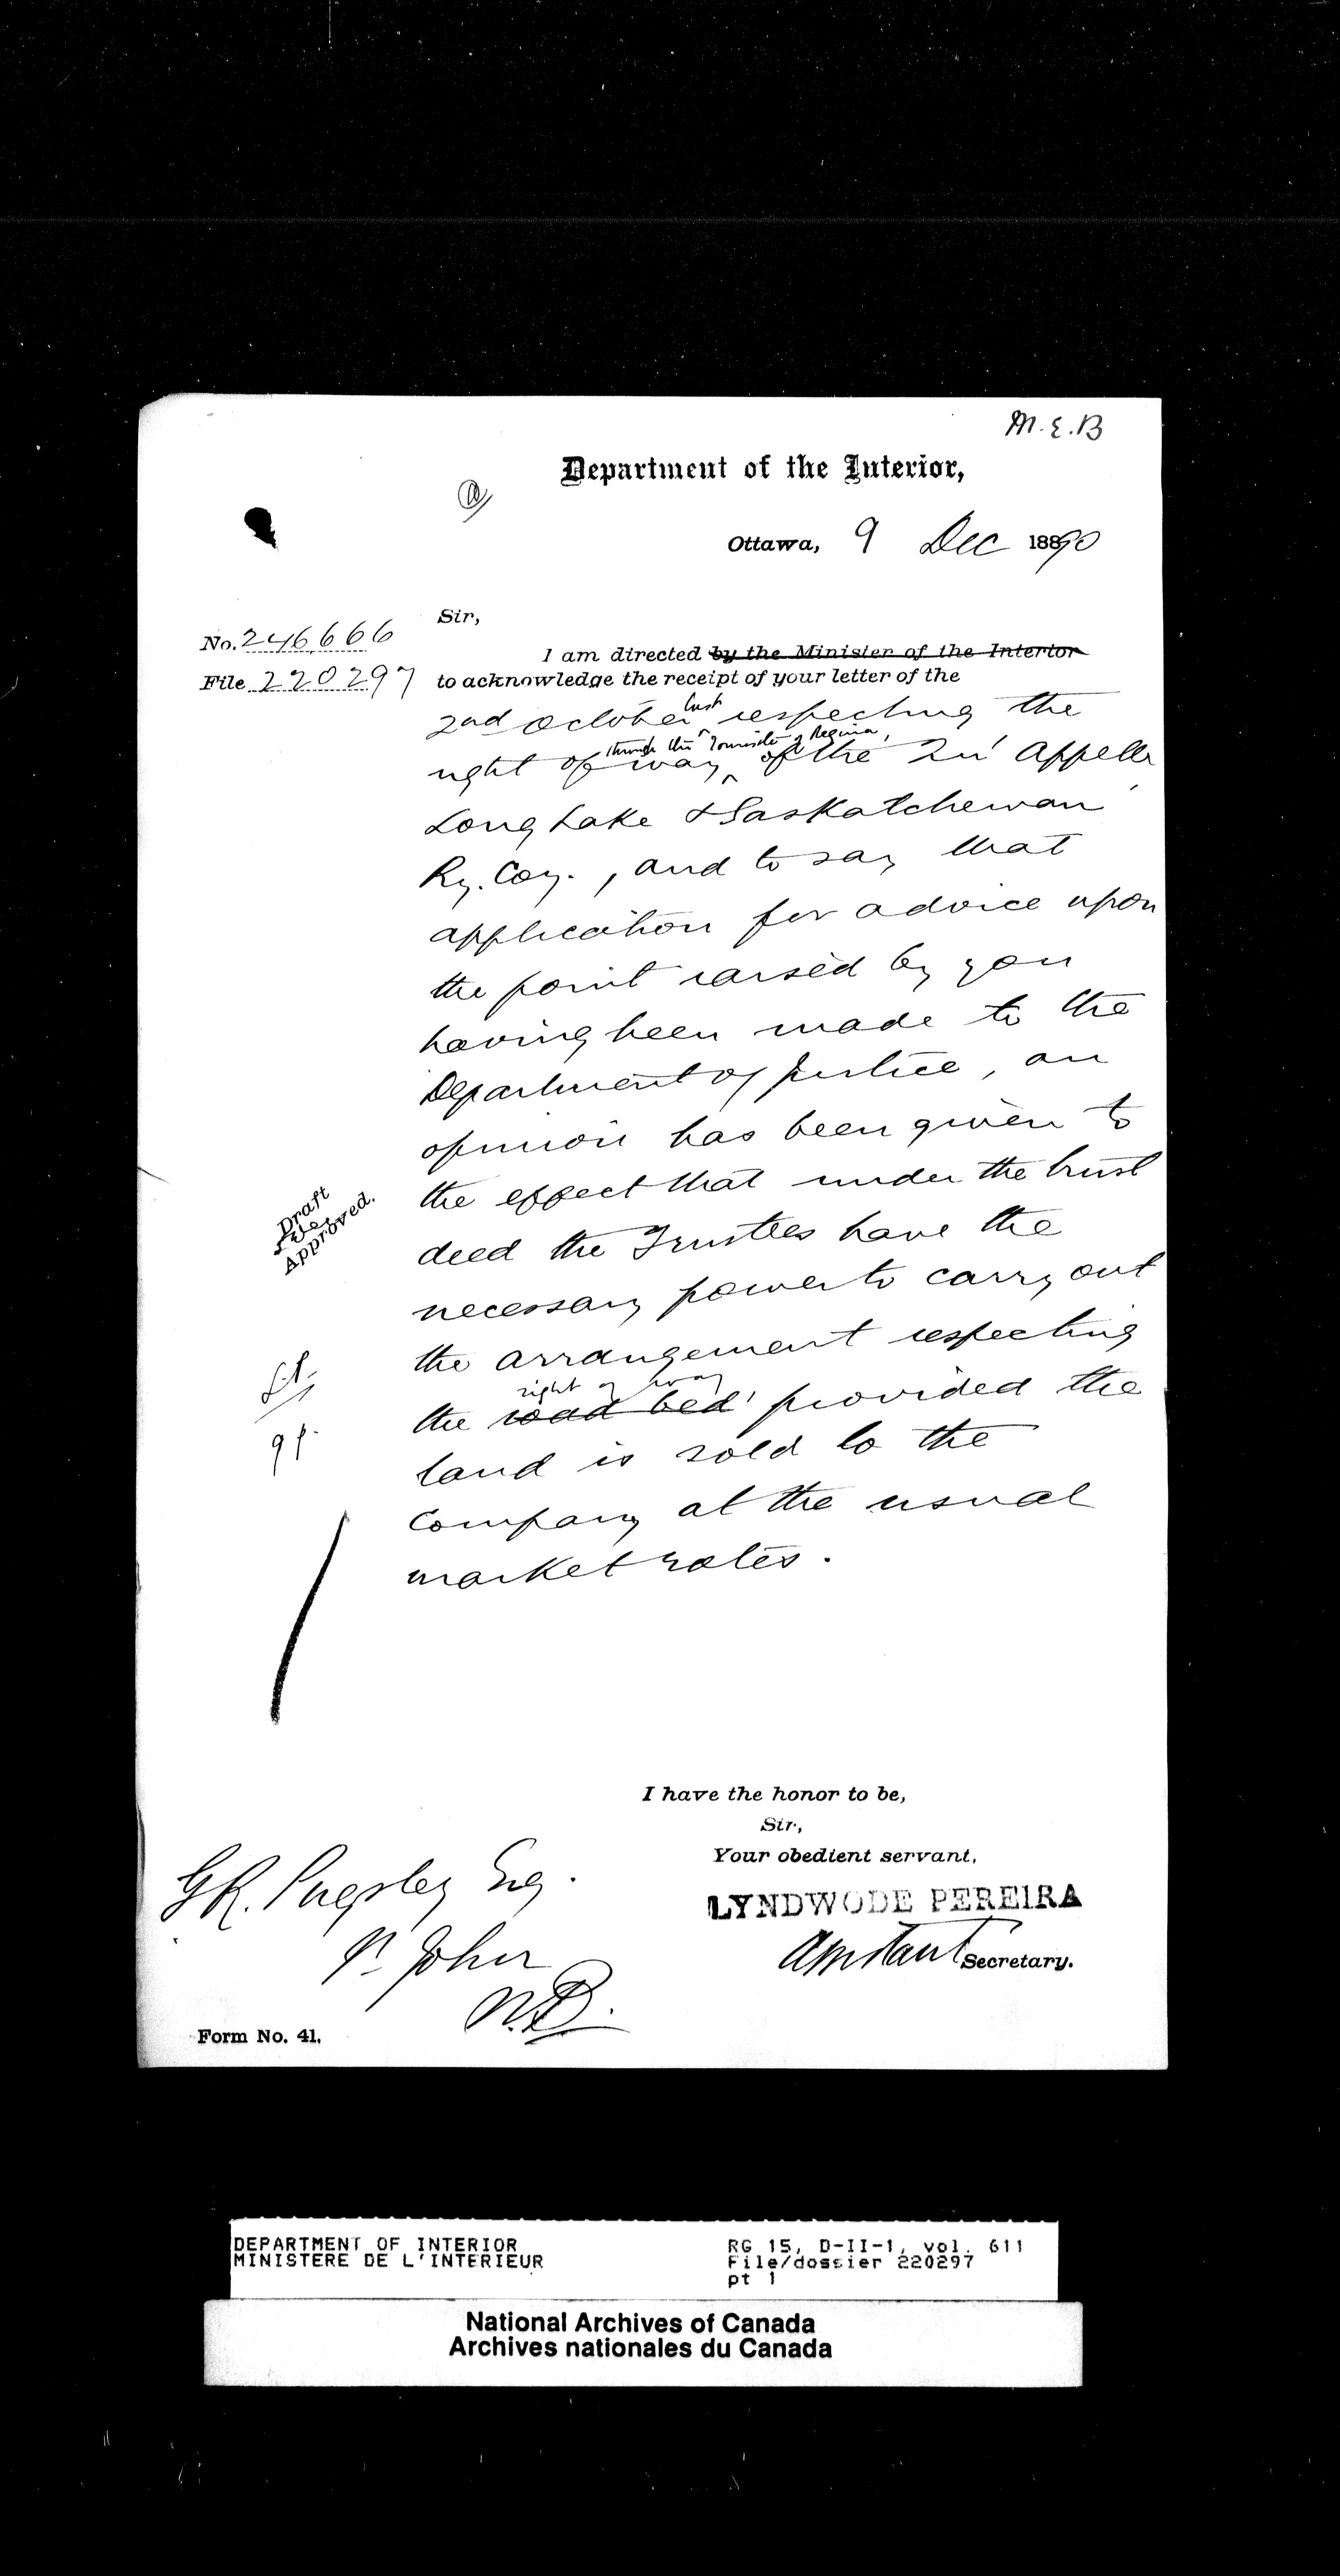 M.E.B
Department of the Interior,
Ottawa, 9 Dec 1890
Sir,
No. 246,666
File 220297
I am directed by the Minister of the Interior
to acknowledge the receipt of your letter of the
last
2nd October respecting the
through the Townsite of Regina,
right of way of the Qu'Appelle
Long Lake & Saskatchewan
Ry. Coy., and to say that
application for advice upon
the point raised by you
having been made to the
Department of Justice, an
opinion has been given to
the effect that under the trust
deed the Trustees have the
necessary power to carry out
the arrangement respecting
right of way
the road bed provided the
land is sold to the
Company at the usual
market rates.
Draft
Approved.
I have the honor to be,
Sir,
Your obedient servant,
LYNDWODE PEREIRA
Assistant Secretary.
G.R. Pugsley Esq.
St. John
N.B.
Form No. 41.
DEPARTMENT OF INTERIOR
MINISTERE DE L'INTERIEUR
RG 15, D-II-1, vol. 611
File/dossier 220297
pt 1
National Archives of Canada
Archives nationales du Canada